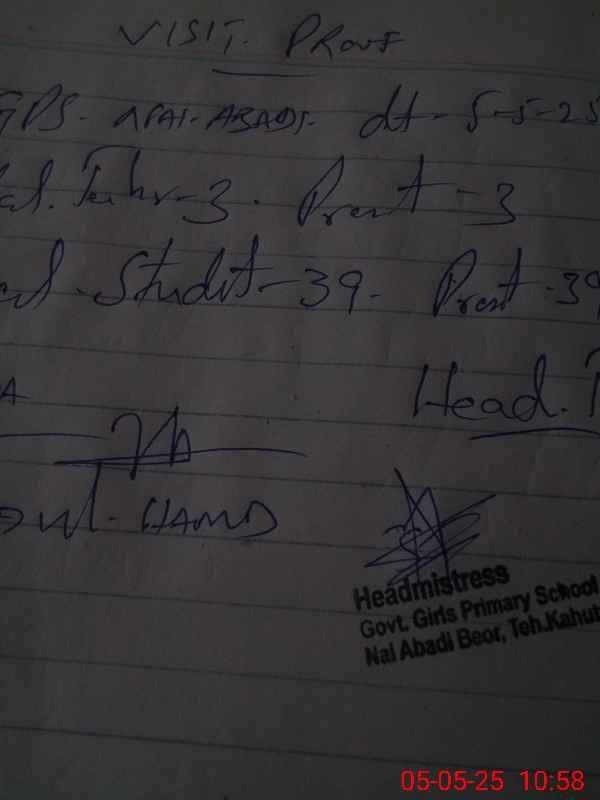 VISIT. PROUF
GPS. NAI. ABADI. dt-5-5-25
al. Tehr-3. Prent-3
al. Studet-39. Prent-39
A
Head. T
HAMID
Headmistress
Govt. Girls Primary School
Nai Abadi Beor, Teh.Kahut
05-05-25 10:58